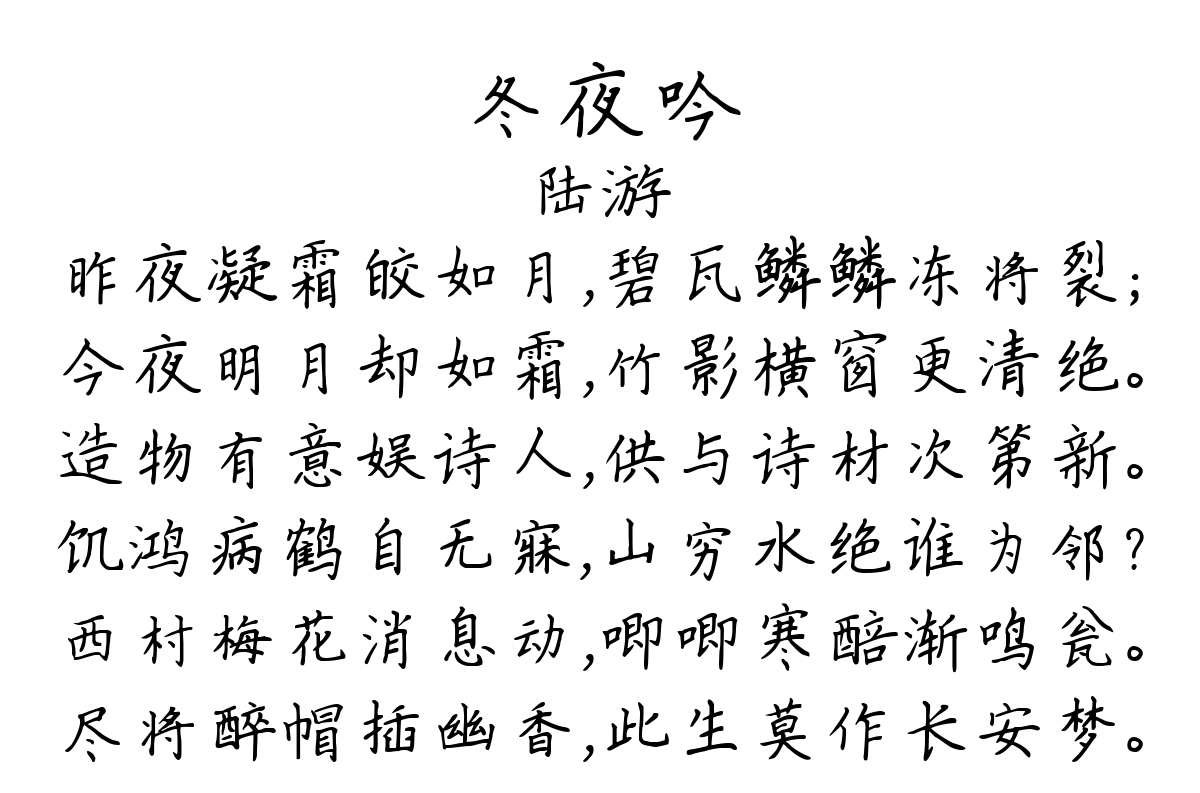 冬夜吟
陆游
昨夜凝霜皎如月,碧瓦鳞鳞冻将裂;
今夜明月却如霜,竹影横窗更清绝。
造物有意娱诗人,供与诗材次第新。
饥鸿病鹤自无寐,山穷水绝谁为邻?
西村梅花消息动,唧唧寒醅渐鸣瓮。
尽将醉帽插幽香,此生莫作长安梦。